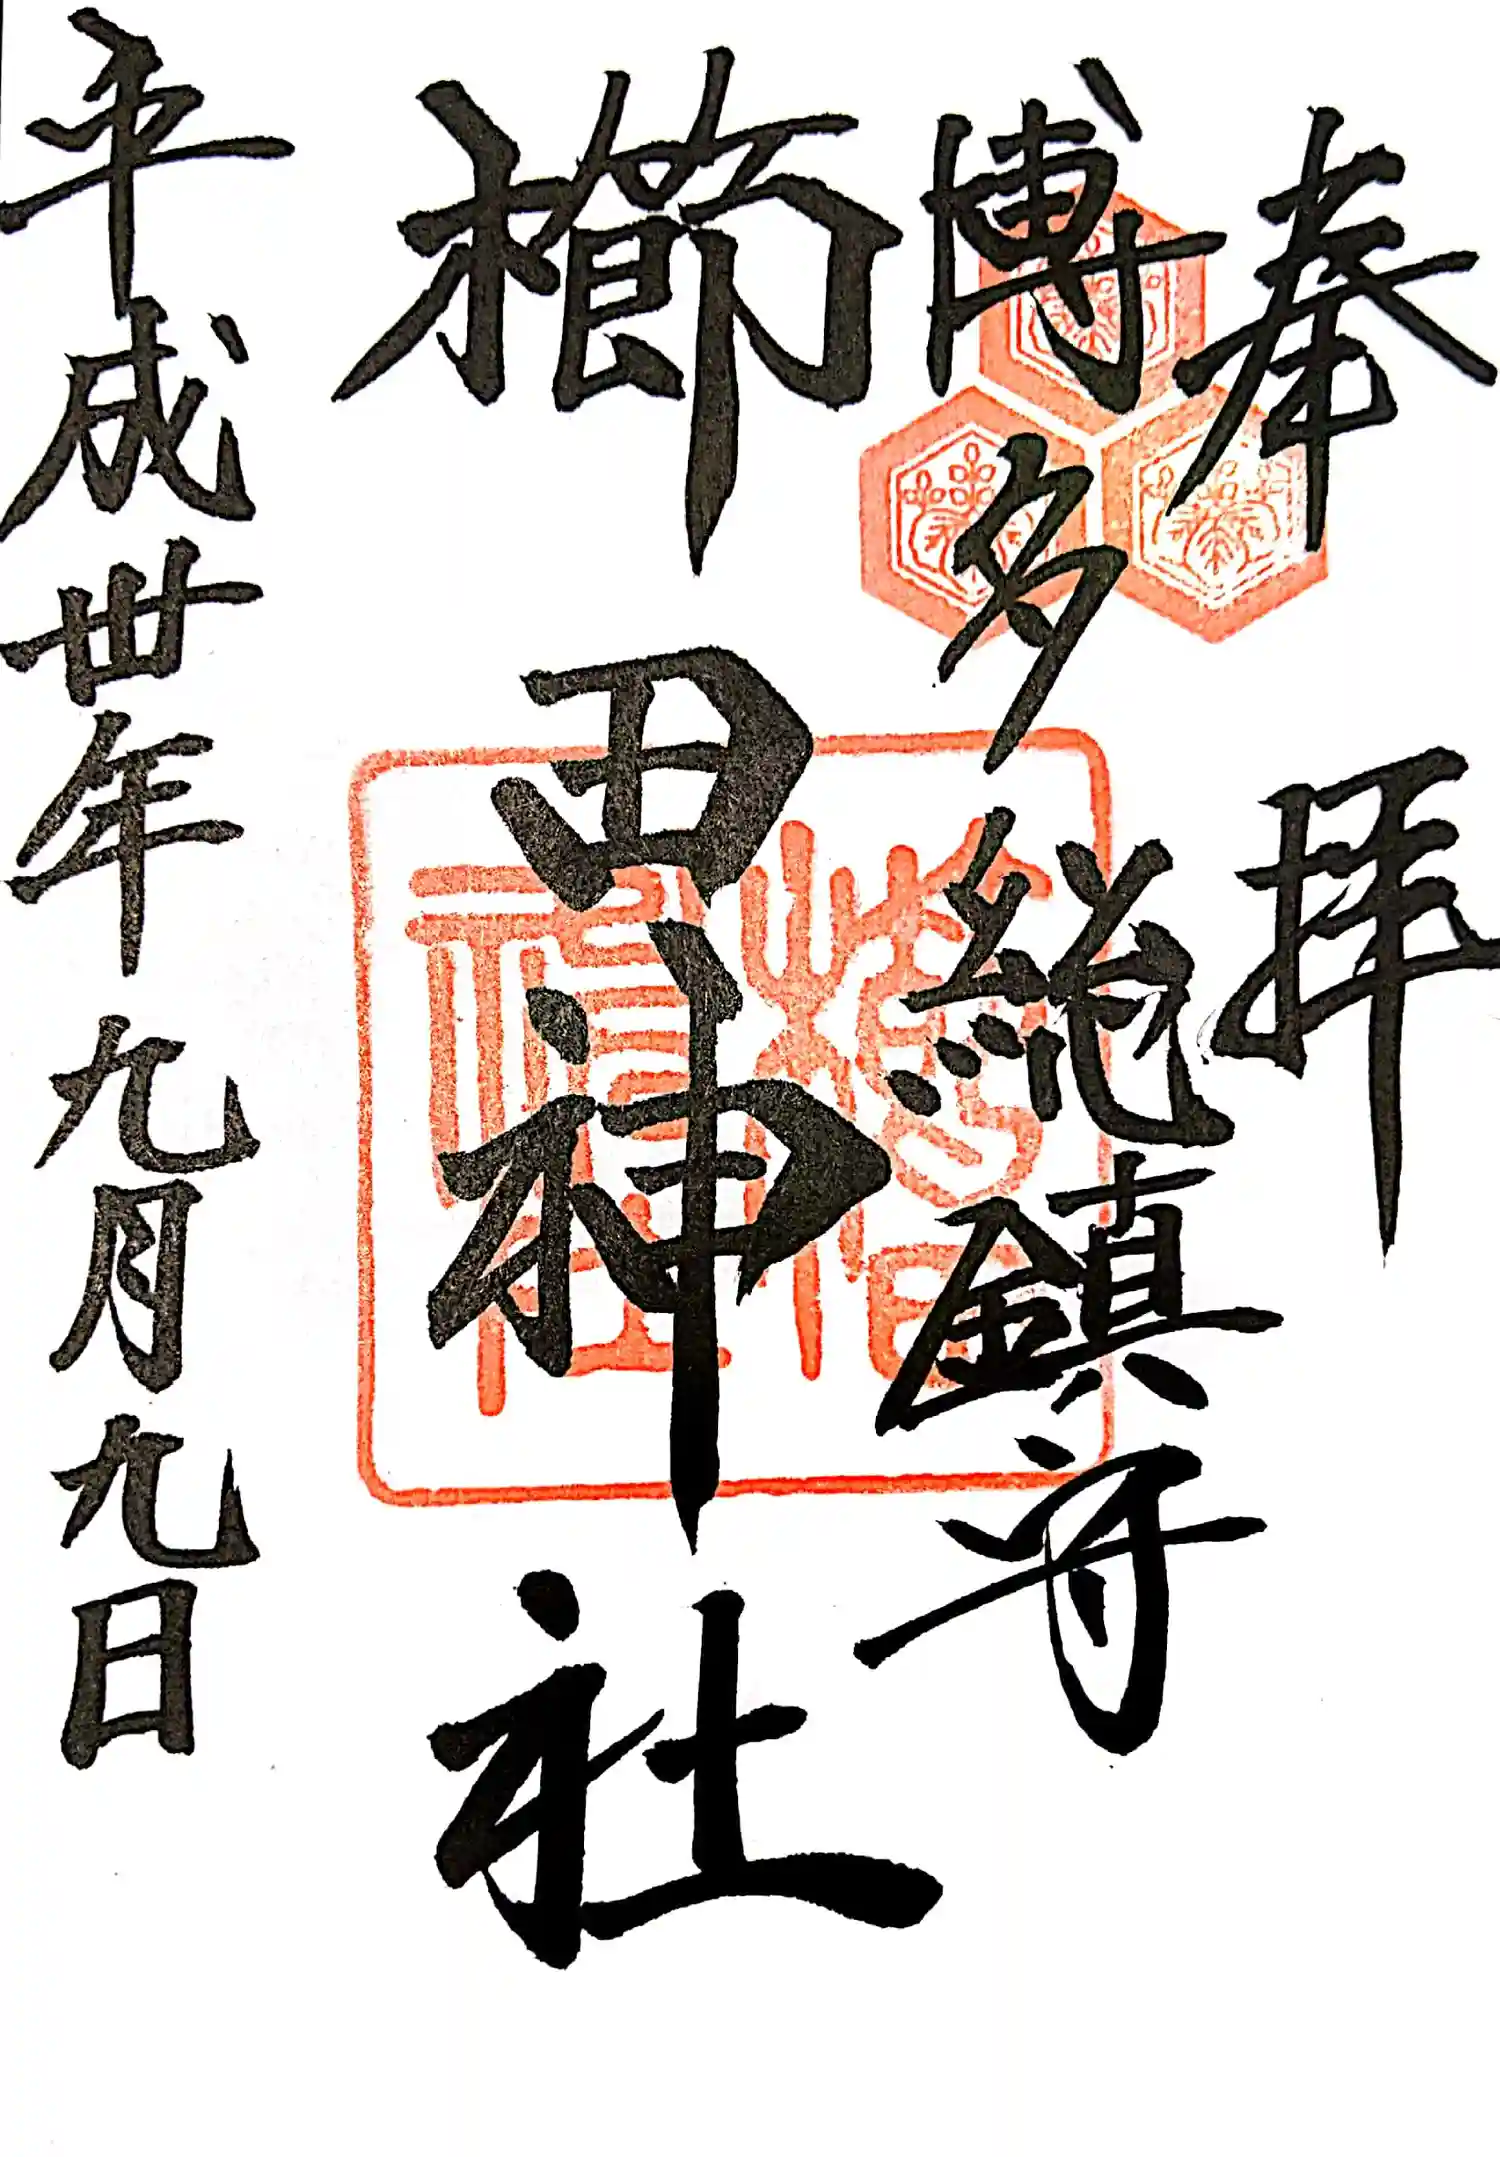 奉拝
博多総鎮守
櫛田神社
平成卅年九月九日